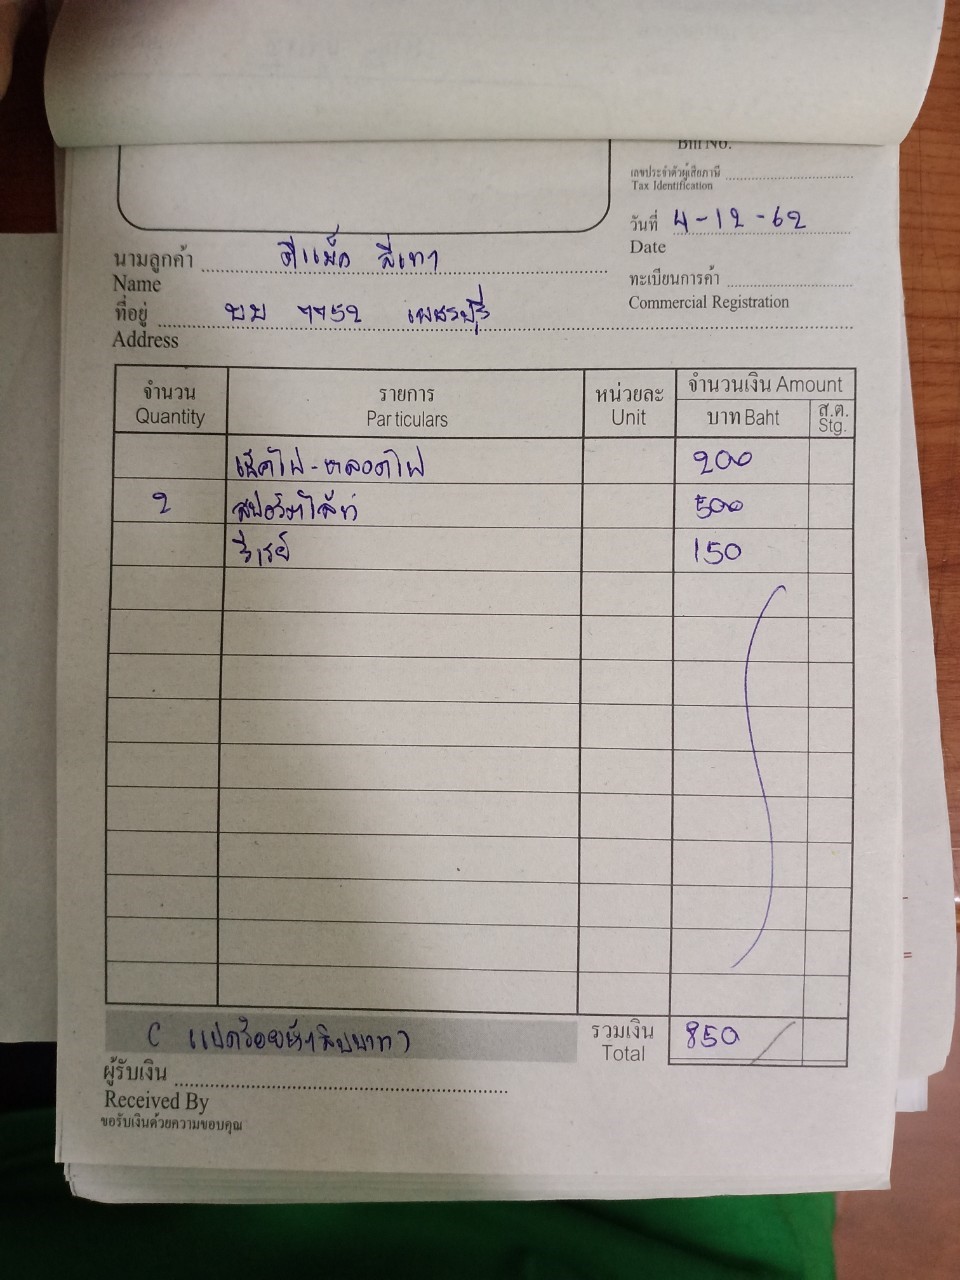 Bill No.
เลขประจำตัวผู้เสียภาษี
Tax Identification
วันที่ 4-12-62
Date
นามลูกค้า ดีแม็ค สีเทา
Name
ทะเบียนการค้า
Commercial Registration
ที่อยู่ บบ 7752 เพชรบุรี
Address
จำนวน รายการ หน่วยละ จำนวนเงิน Amount
Quantity Particulars Unit บาท Baht ส.ต. Stg.
เช็คไฟ-หลอดไฟ 200
2 สปอร์ตไล้ท์ 500
รีเรย์ 150
( แปดร้อยห้าสิบบาท ) รวมเงิน 850
Total
ผู้รับเงิน
Received By
ขอรับเงินด้วยความขอบคุณ